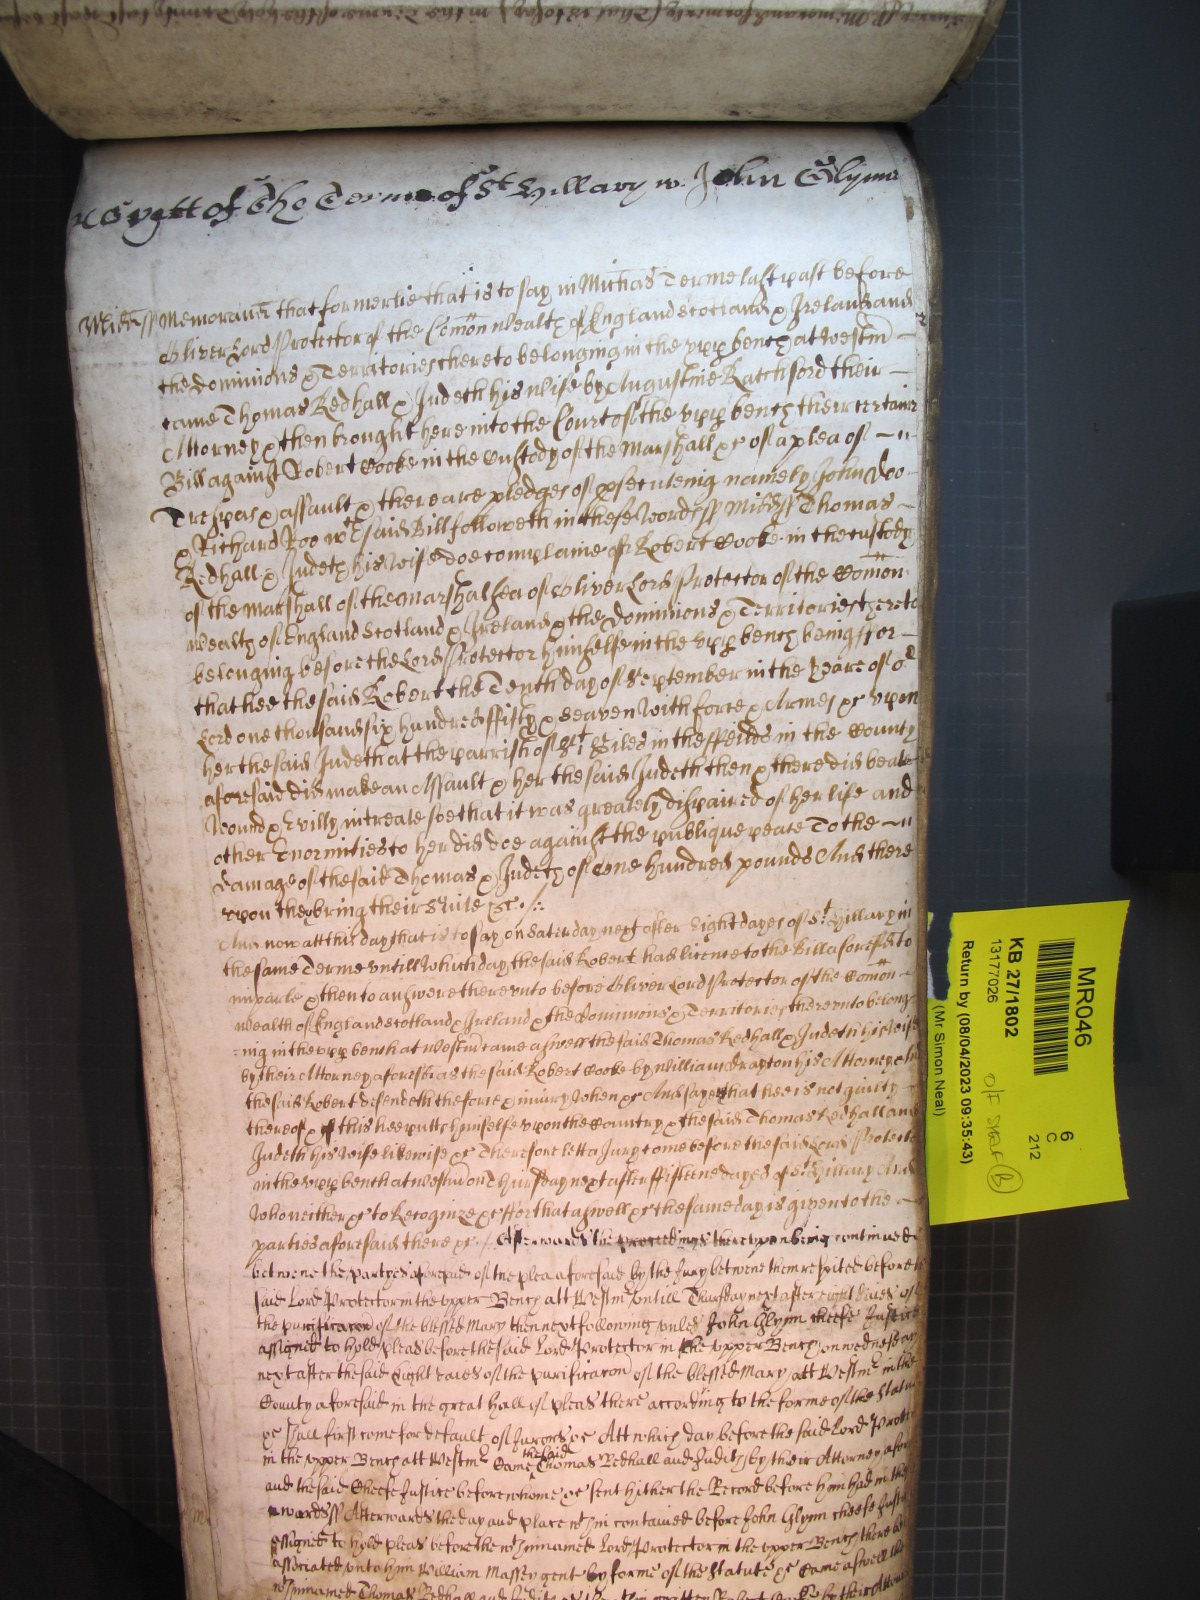 yett of The Terme of St Hillary w. John Glynn
Midds ss Memorand that formerlie that is to say in Michas Terme last past before
Oliver Lord Protector of the Comon wealth of England Scotland & Ireland and
the dominions & Territories thereto belonging in the vpp bench at Westm
came Thomas Redhall & Judeth his wife by Augustine Ratchford their
Attorney & then brought here into the Court of the vpp bench their certaine
Bill against Robert Cooke in the Custody of the Marshall &c of a plea of
Trespas & assault & there are pledges of psecuteing namely John Doo
& Richard Roo wch said Bill followeth in these words ss Midds ss Thomas
Redhall & Judeth his wife doe complaine of Robert Cooke in the custody
of the Marshall of the Marshalsea of Oliver Lord Protector of the Comon
wealth of England Scotland & Ireland & the dominions & Territories thereto
belonging before the Lord Protector himselfe in the vpp bench being for
that hee the said Robert the Tenth day of September in the yeare of or
Lord one thousand six hundred fifty & seaven with force & Armes &c vpon
her the said Judeth at the parrish of St Giles in the ffeilds in the County
aforesaid did make an Assault & her the said Judeth then & there did beate
wound & Evilly intreate soe that it was greately dispaired of her life and
other Enormities to her did doe against the publique peace To the
damage of the said Thomas & Judeth of one hundred pounds And there
vpon they bring their suite &c
And now att this day that is to say on Saturday next after Eight dayes of St Hillary in
the same Terme vntill which day the said Robert had licence to the Bill aforesd to
imparle & then to answere therevnto before Oliver Lord Protector of the Comon
wealth of England Scotland & Ireland & the dominions & Territories therevnto belong
ing in the vpp bench at Westm came aswell the said Thomas Redhall & Judeth his wife
by their Attorney aforesd as the said Robert Cooke by William Drayton his Attorney And
the said Robert defendeth the force & iniury when &c And saye that hee is not guilty
thereof & of this hee putts himselfe vpon the Country & the said Thomas Redhall and
Judeth his wife likewise &c Therefore lett a Jury come before the said Lord Protector
in the vpp bench at Westm on Thursday next after fifteene dayes of St Hillary And
who neither &c to Recognize &c ffor that aswell &c the same day is given to the
parties aforesaid there &c Afterwards the proceedings therevpon being continued
betweene the partyes aforesaid of the plea aforesaid by the Jury betweene them respited before the
said Lord Protector in the vpper Bench att Westmr vntill Thursday next after eight daies of
the purificacon of the blessed Mary then next following vnles John Glynn cheefe Justice
assigned to hold pleas before the said Lord Protector in the vpper Bench on wednesday
next after the said Eight daies of the purificacon of the blessed Mary att Westmr in the
County aforesaid in the great hall of pleas there according to the forme of the Statute
&c shall first come for default of Jurors &c Att which day before the said Lord Protector
in the vpper Bench att Westmr Came the said Thomas Redhall and Judith by their Attorney afore
and the said Cheefe Justice before whome &c sent hither the Record before him had in these
words ss Afterwards the day and place wthin contained before John Glynn cheefe Justice
assigned to hold pleas before the wthinnamed Lord Protector in the vpper Bench there being
associated vnto him William Massey gent by forme of the Statute &c Came aswell the
wthinnamed Thomas Redhall and Judith
MR046
6
C
212
KB 27/1802
13177026
O/F SHELF B
Return by (08/04/2023 09:35:43)
(Mr Simon Neal)